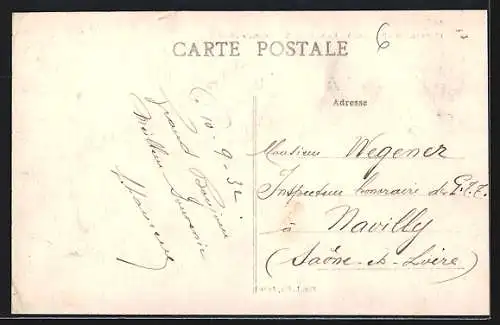 6
CARTE POSTALE
Adresse
Le 10-9-32
Grand Bonjour
Meilleur Souvenir
Monsieur Wegener
Inspecteur honoraire de P.T.T.
à Navilly
(Saône-et-Loire)